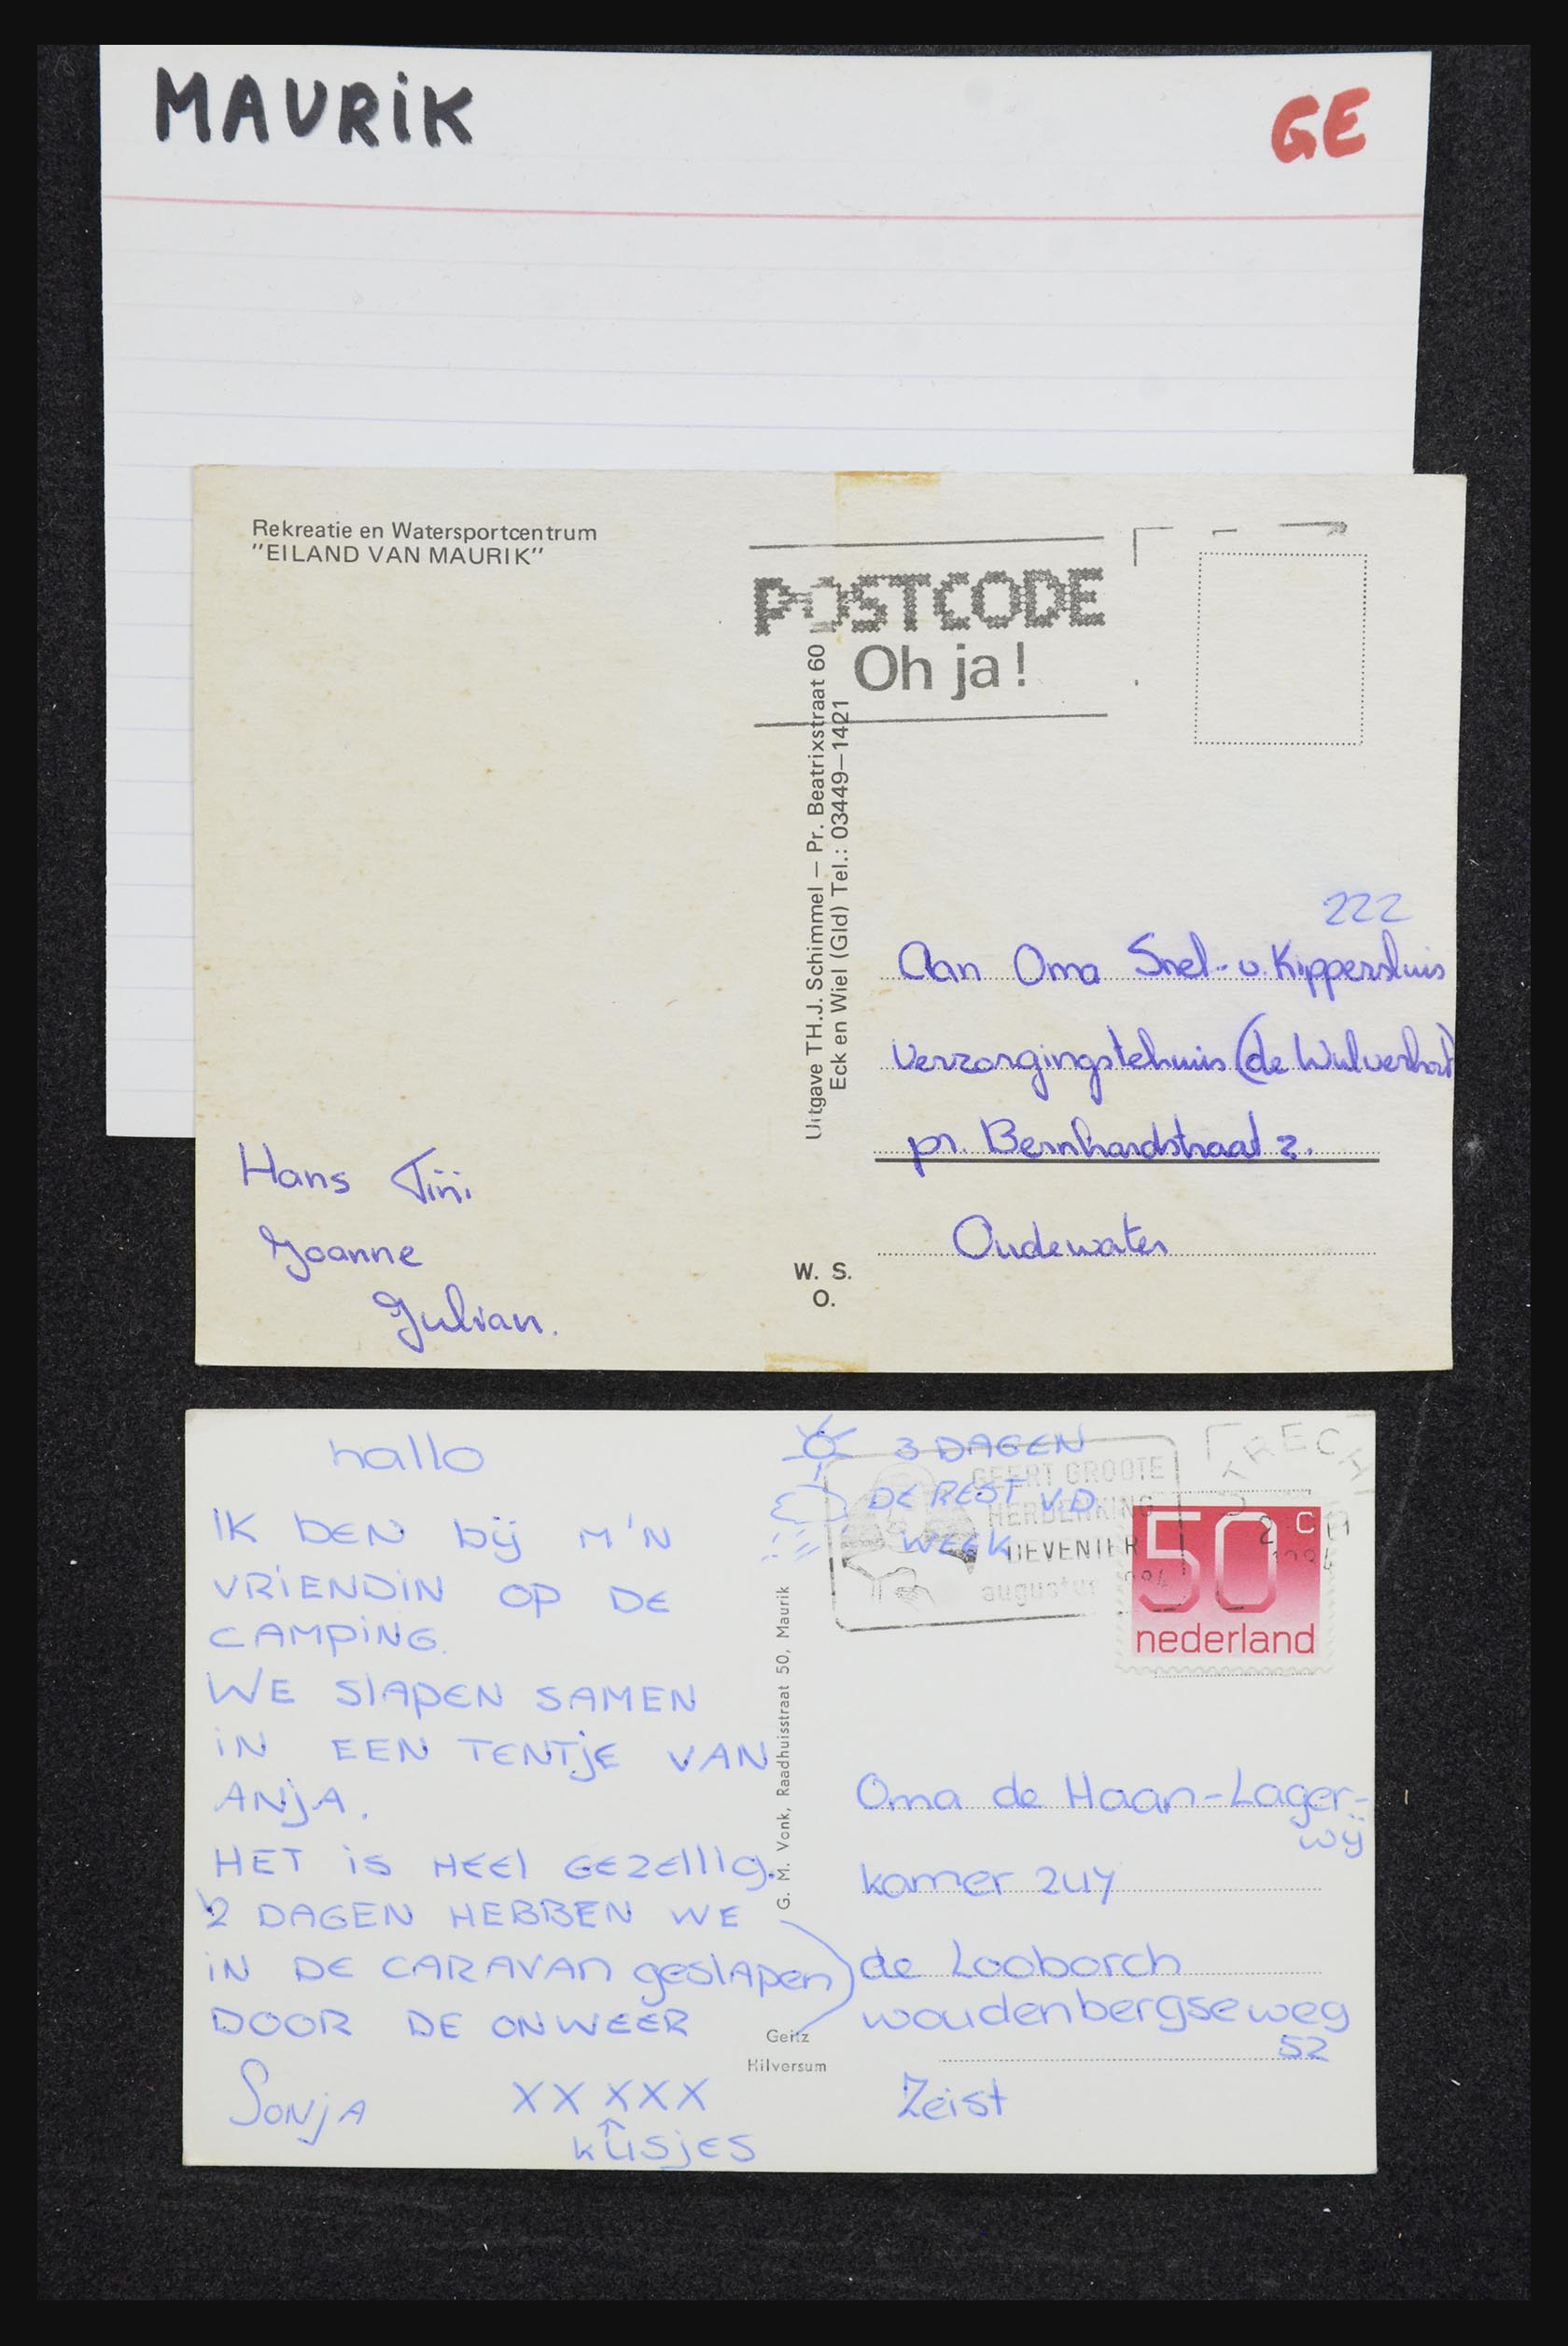 MAURIK
GE
Rekreatie en Watersportcentrum
"EILAND VAN MAURIK"
POSTCODE
Oh ja!
Uitgave TH.J. Schimmel — Pr. Beatrixstraat 60
Eck en Wiel (Gld) Tel.: 03449–1421
222
Aan Oma Snel-v. Kippersluis
verzorgingstehuis (de Wulverhorst)
pr. Bernhardstraat 2.
Oudewater
Hans Tini
Joanne
Julian.
W. S.
O.
hallo
IK BEN bij M'N
VRIENDIN OP DE
CAMPING.
WE SlAPEN SAMEN
IN EEN TENTjE VAN
ANjA.
HET is HEEl GEZEllIg.
2 DAGEN HEBBEN WE
IN DE CARAVAN geslapen
DOOR DE ONWEER
SONjA XX XXX
kusjes
3 DAGEN
DE REST V.D.
WEEK
GEERT GROOTE
HERDENKING
DEVENTER
augustus 1984
TRECHT
1984
50 c
nederland
G. M. Vonk, Raadhuisstraat 50, Maurik
Oma de Haan-Lager-
wij
kamer 247
de Looborch
woudenbergseweg
52
Zeist
Geitz
Hilversum